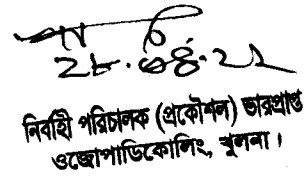 ২৮.০৪.২২
নির্বাহী পরিচালক (প্রকৌশল) ভারপ্রাপ্ত
ওজোপাডিকোলিঃ, খুলনা।